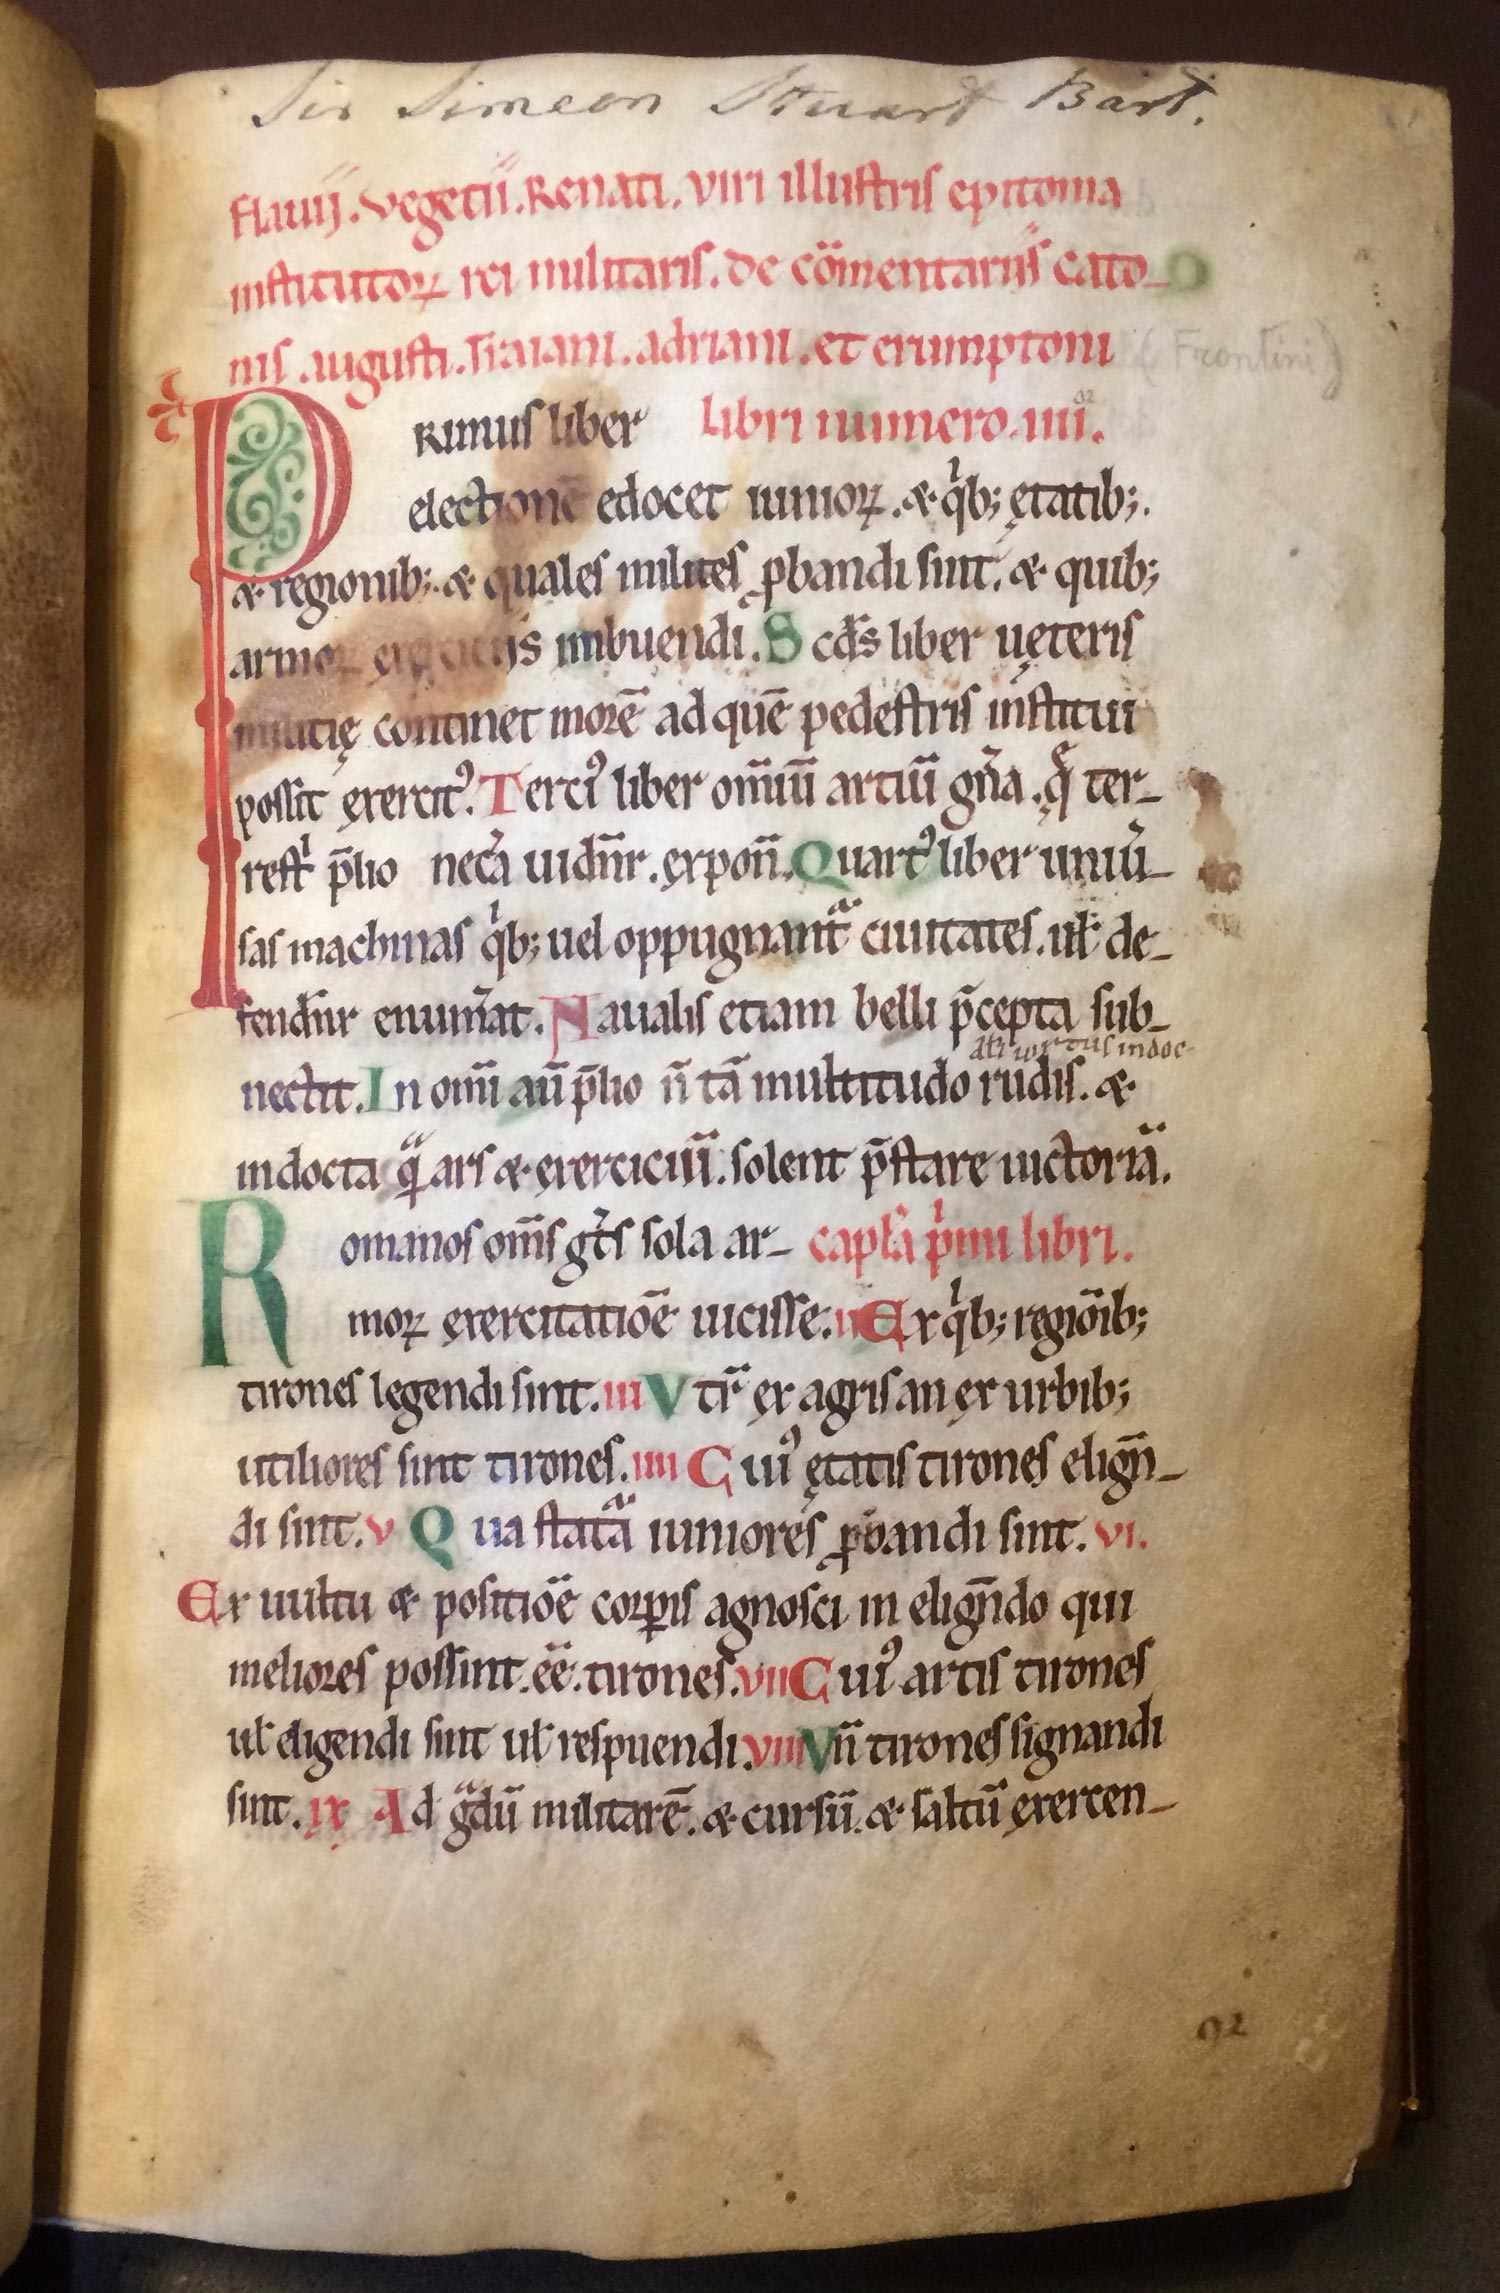 Sir Simeon Stuart Bart.
flauij. vegetii. Renati. viri illustris epitoma
institutoꝝ rei militaris. de cōmentariis Cato-
nis. augusti. Traiani. adriani. et erumptoni
(Frontini)
PRimus liber libri numero. iiiiᵒʳ.
electionē edocet iunioꝝ. & qͥb; ętatib;.
& regionib;. & quales milites ꝓbandi sint. & quib;
armoꝝ exercitijs imbuendi. Scd̄s liber uęteris
militię continet morē ad quē pedestris institui
possit exercitꝰ. Terciꝰ liber om̄iū artiū gn̄a. q̄ ter-
restͥ p̄lio nec̄a uidn̄r. expon̄. Quartꝰ liber uniu̾-
sas machinas qͥb; uel oppugnant̄ ciuitates. ut̄ de-
fendn̄r enum̄at. Naualis etiam belli p̄cepta sub-
nectit. In om̄i au̅ p̄lio n̄ tā multitudo rudis. &
indocta qͣ̄ ars & exerciciū. solent p̄stare uictoriā.
Romanos om̄s gt̄s sola ar- capl̄a pͥmi libri.
moꝝ exercitatiōe uicisse. ii Ex qͥb; regiōib;
tirones legendi sint. iii Vtr̄ ex agris an ex urbib;
utiliores sint tirones. iiii Cuiꝰ ętatis tirones elign̄-
di sint. v Qua statͣ̄ iuniores ꝓbandi sint. vi.
Ex uultu & positiōe corꝑis agnosci in elign̄do qui
meliores possint. ēē. tirones. vii Cuiꝰ artis tirones
ul̄ eligendi sint ul̄ respuendi. viii Vn̄ tirones signandi
sint. ix Ad gͣdū militarē. & cursū. & saltū exercen-
92